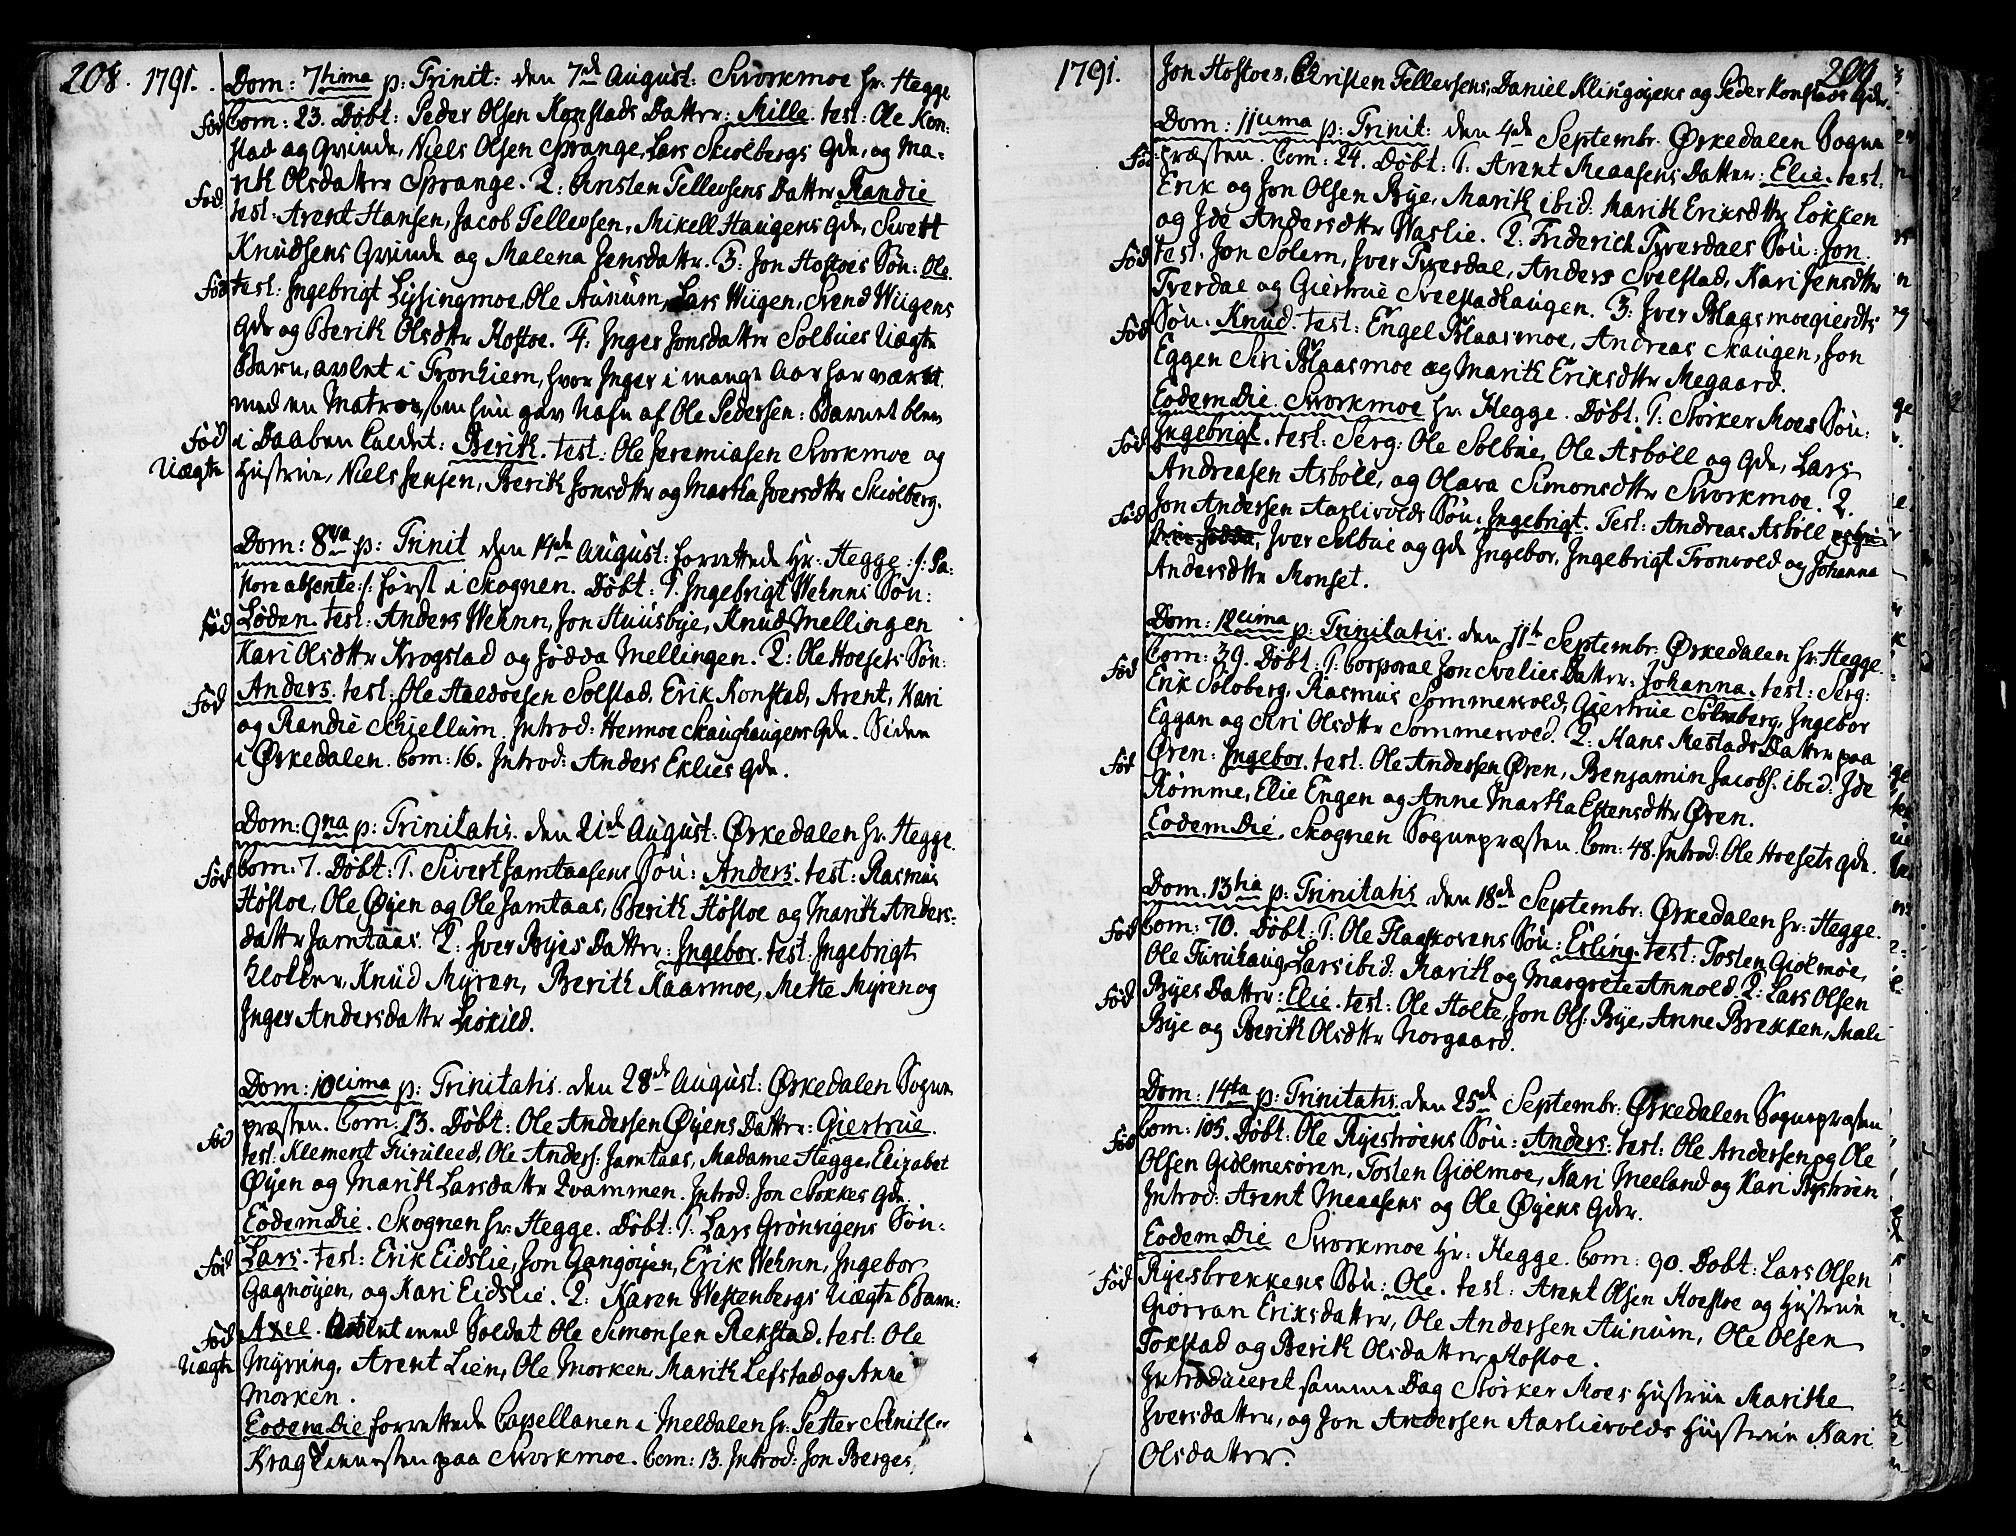 208. 1791.
Dom: 7tima p: Trinit: den 7de August: Svorkmoe hr: Hegge
Fød Com: 23. Døbt: Peder Olsen Konstads Datter: Mille. test: Ole Kon:
stad og Qvinde, Niels Olsen Sprange, Lars Skiolbergs Qde, og Ma-
rith Olsdatter Sprange. 2: Christen Tellevsens Datter Randie
Fød
test: Arent Hansen, Jacob Tellevsen, Mikell Haugens Qde, Sivert
Knudsens Qvinde og Malena Jensdattr. 3: Jon Hostoes Søn: Ole.
Fød test: Ingebrigt Lysingmoe, Ole Aunum, Lars Wiigen, Svend Wiigens
Qde og Berith Olsdttr Hostoe. 4: Inger Jonsdatter Solbues Uægte
Barn, avlet i Tronhiem, hvor Inger i mange Aar har været
med en Matros, som hun gav Nafn af Ole Pedersen: Barnet blev
Fød i Daaben kaldet: Berith. test: Ole Jeremiasen Svorkmoe og
Uægte Hustrue, Niels Jensen, Berith Jonsdttr og Martha Iversdttr Skiolberg.
Dom: 8va p: Trinit den 14de August: forrettede Hr: Hegge /: Pa:
store absente :/ først i Skognen. Døbt: 1. Ingebrigt Wehnns Søn:
Fød Loden. test: Anders Wehnn, Jon Huusbye, Knud Mellingen
Kari Olsdttr Krogstad og Jødda Mellingen. 2: Ole Hoesets Søn:
Fød Anders. test: Ole Haldoesen Solstad, Erik Konstad, Arent, Kari
og Randie Schiellum. Introd: Hermoe Skaughaugens Qde. Siden
i Ørkedalen. Com: 16. Introd: Anders Eklies Qde.
Dom: 9na p: Trinitatis. den 21de August: Ørkedalen hr: Hegge.
Fød Com: 7. Døbt: 1. Sivert Jamtaasens Søn: Anders. test: Rasmus
Høstoe, Ole Øyen og Ole Jamtaas, Berith Høstoe og Marith Anders-
datter Jamtaas. 2: Iver Byes Datter: Ingebor. test: Ingebrigt
Klokker, Knud Myren, Berith Kaarmoe, Mette Myren og
Inger Andersdatter Liøkild.
Dom: 10cima p: Trinitatis. den 28de August: Ørkedalen Sogne
præsten. Com: 13. Døbt: Ole Andersen Øyens Datter: Giertrue.
Fød test: Klement Furuleed, Ole Anders: Jamtaas, Madame Hegge, Elizabet
Øyen og Marith Larsdatter Kvammen. Introd: Jon Stokkes Qde.
Eodem Die. Skognen hr: Hegge. Døbt: 1. Lars Grønvigens Søn:
Fød Lars. test: Erik Eidslie, Jon Gangøyen, Erik Wehnn, Ingebor
Gagnøyen, og Kari Eidslie. 2: Karen Westenbergs Uægte Barn:
Fød Axel. avlet med Soldat Ole Simonsen Rekstad. test: Ole
Uægte Myrring, Arent Lien, Ole Morken, Marith Lefstad og Anne
Morken.
Eodem Die forrettede Capellanen i Meldalen hr: Petter Schnitler
Krag Tienesten paa Svorkmoe. Com: 13. Introd: Jon Berges,
1791. 209
Jon Hostoes, Christen Tellevsens, Daniel Klingøyens og Peder Konstads Qdr.
Dom: 11cima p: Trinit: den 4de Septembr. Ørkedalen Sogne
Fød præsten. Com: 24. Døbt: 1. Arent Meaasens Datter: Elie. test:
Erik og Jon Olsen Bye, Marith ibid: Marith Eriksdttr Løkken
og Ide Andersdttr Waslie. 2: Friderich Tverdaes Søn: Jon
Fød test. Jon Solem, Iver Tverdae, Anders Sveelstad, Kari Jensdttr
Tverdae og Giertrue Sveelstadhaugen. 3: Iver Blaasmoegierdts
Fød Søn. Knud. test: Engel Blaasmoe, Andreas Skaugen, Jon
Eggen Siri Blaasmoe og Marith Eriksdttr Megaard.
Eodem Die. Svorkmoe hr. Hegge. Døbt. 1. Størker Moes Søn:
Fød Ingebrigt. test: Serg: Ole Solbue, Ole Asbøll og Qde, Lars
Andreasen Asbøll, og Olava Simonsdttr Svorkmoe. 2.
Fød Jon Andersen Aarlivolds Søn: Ingebrigt. Test: Andreas Asbøll
Iver Solbue og Qde Ingebor, Ingebrigt Tronvold og Johanna
Andersdttr Monset.
Dom: 12cima p: Trinitatis. den 11te Septembr. Ørkedalen hr: Hegge.
Fød Com: 39. Døbt: 1. Corporal Jon Evelies Datter: Johanna. test: Serg:
Erik Soloberg, Rasmus Sommervold, Giertrue Solberg, Ingebor
Eggan og Siri Olsdttr Sommervold. 2: Hans Mestads Datter paa
Fød Øren: Ingebor. test: Ole Andersen Øren, Benjamin Jacobs. ibid: Ide
Rømme, Elie Engen og Anne Martha Estensdttr Øren.
Eodem Die. Skognen Sognepræsten. Com: 48. Introd: Ole Hoesets Qde.
Dom: 13tia p: Trinitatis den 18de Septembr: Ørkedalen hr: Hegge.
Fød Com: 70. Døbt: 1. Ole Flaaskovens Søn: Erling. test: Tosten Giølmoe,
Ole Furuhaug, Lars ibid: Marith og Margrete Annold. 2: Lars Olsen
Fød Byes Datter: Elie. test: Ole Holte, Jon Ols: Bye, Anne Brekken, Male
Bye og Berith Olsdttr Norgaard.
Dom: 14ta p: Trinitatis. den 25de Septembr: Ørkedalen Sognepræsten
Fød Com: 105. Døbt: Ole Ryestrøens Søn: Anders. test: Ole Andersen og Ole
Olsen Giølmesøren, Tosten Giølmoe, Kari Meeland og Kari Ryestrøen
Introd: Arent Meaasens og Ole Øyens Qder.
Eodem Die Svorkmoe Hr: Hegge. Com: 90. Døbt: Lars Olsen
Fød Ryesbrekkens Søn: Ole. test: Arent Olsen Hoestoe og Hustrue
Giørran Eriksdatter, Ole Andersen Aunum, Ole Olsen
Tokstad og Berith Olsdatter Hostoe.
Introduceret samme Dag Størker Moes Hustrue Marithe
Iversdatter, og Jon Andersen Aarlievolds Hustrue Kari
Olsdatter.